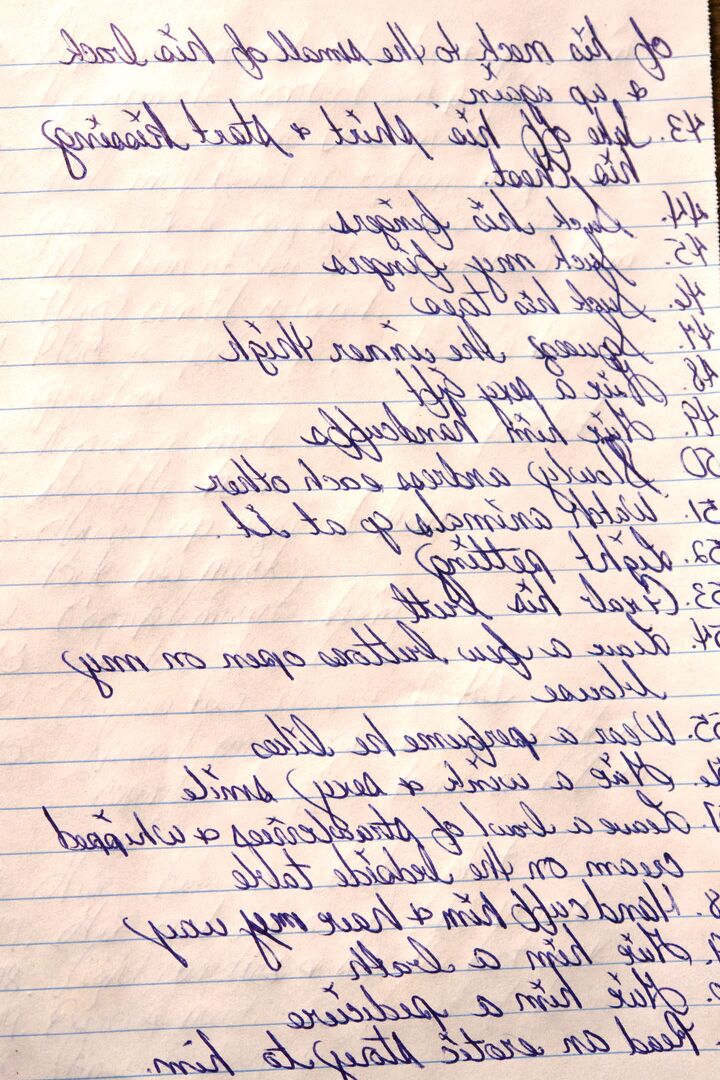 of his neck to the small of his back
& up again
43. Take off his shirt & start kissing
his chest.
44. Suck his fingers
45. Suck my fingers
46. Suck his toes
47. Squeez the inner thigh
48. Give a sexy gift
49. Give him handcuffs
50 Slowly undress each other
51. Watch animals go at it.
52. Light petting
53. Grab his butt
54. Leave a few buttons open on my
blouse
55. Wear a perfume he likes
6. Give a wink & sexy smile
7. Leave a bowl of strawberries & whipped
cream on the bedside table
8. Handcuff him & have my way
9. Give him a bath
0. Give him a pedicure
. Read an erotic story to him.